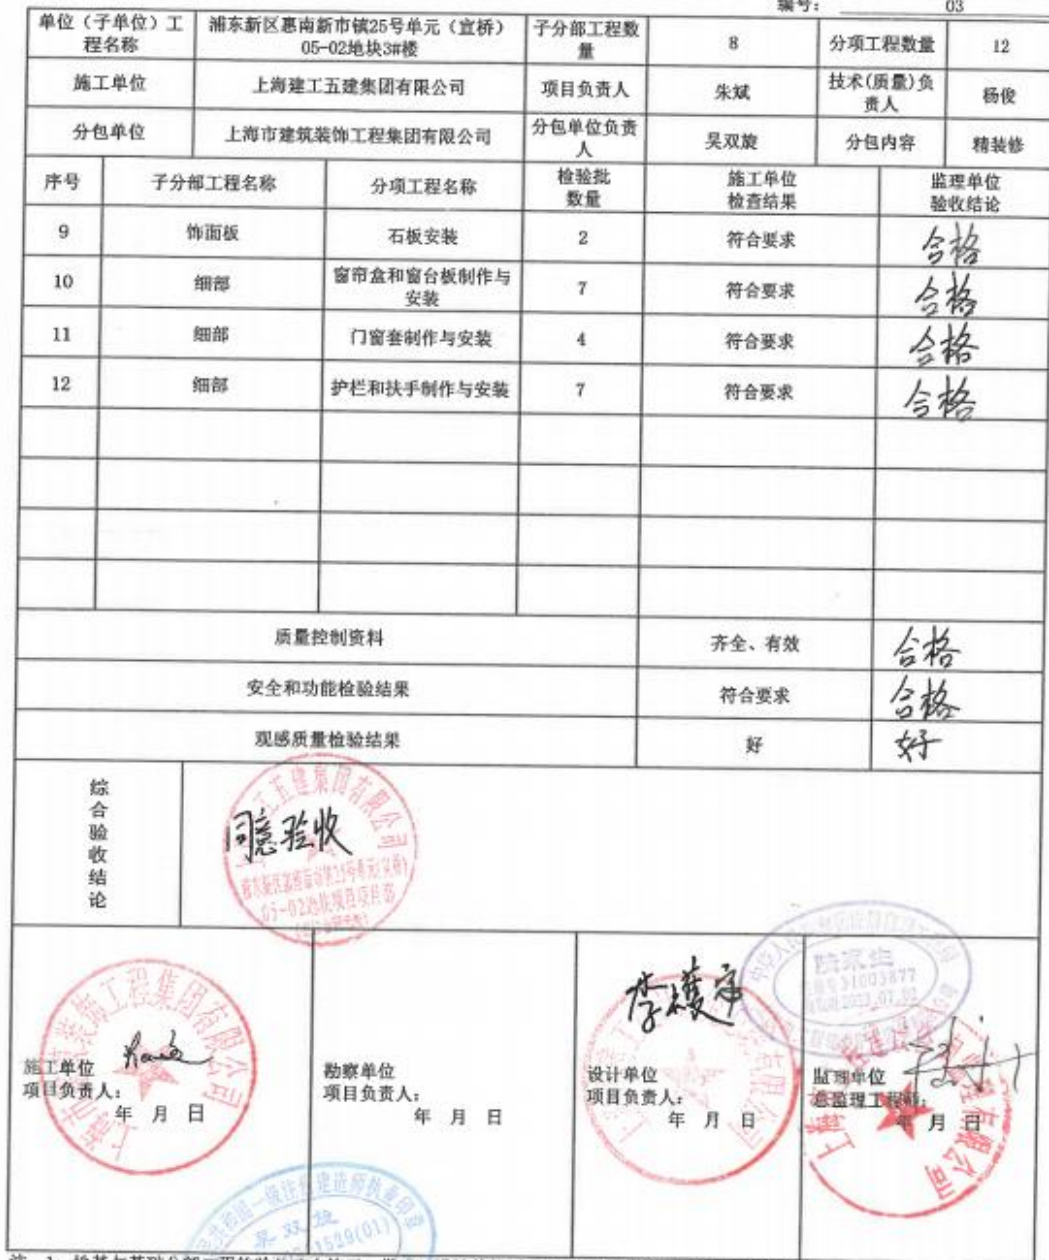 编号： 03
单位（子单位）工程名称 浦东新区惠南新市镇25号单元（宣桥）05-02地块3#楼 子分部工程数量 8 分项工程数量 12
施工单位 上海建工五建集团有限公司 项目负责人 朱斌 技术(质量)负责人 杨俊
分包单位 上海市建筑装饰工程集团有限公司 分包单位负责人 吴双旋 分包内容 精装修
序号 子分部工程名称 分项工程名称 检验批数量 施工单位检查结果 监理单位验收结论
9 饰面板 石板安装 2 符合要求 合格
10 细部 窗帘盒和窗台板制作与安装 7 符合要求 合格
11 细部 门窗套制作与安装 4 符合要求 合格
12 细部 护栏和扶手制作与安装 7 符合要求 合格
质量控制资料 齐全、有效 合格
安全和功能检验结果 符合要求 合格
观感质量检验结果 好 好
综合验收结论 同意验收
05-02地块项目
施工单位
项目负责人：
年 月 日
勘察单位
项目负责人：
年 月 日
设计单位
项目负责人：
年 月 日
监理单位
总监理工程师：
年 月 日
装饰工程集团有限公司
31003877
一级注册建造师执业印章
吴双旋
1529(01)